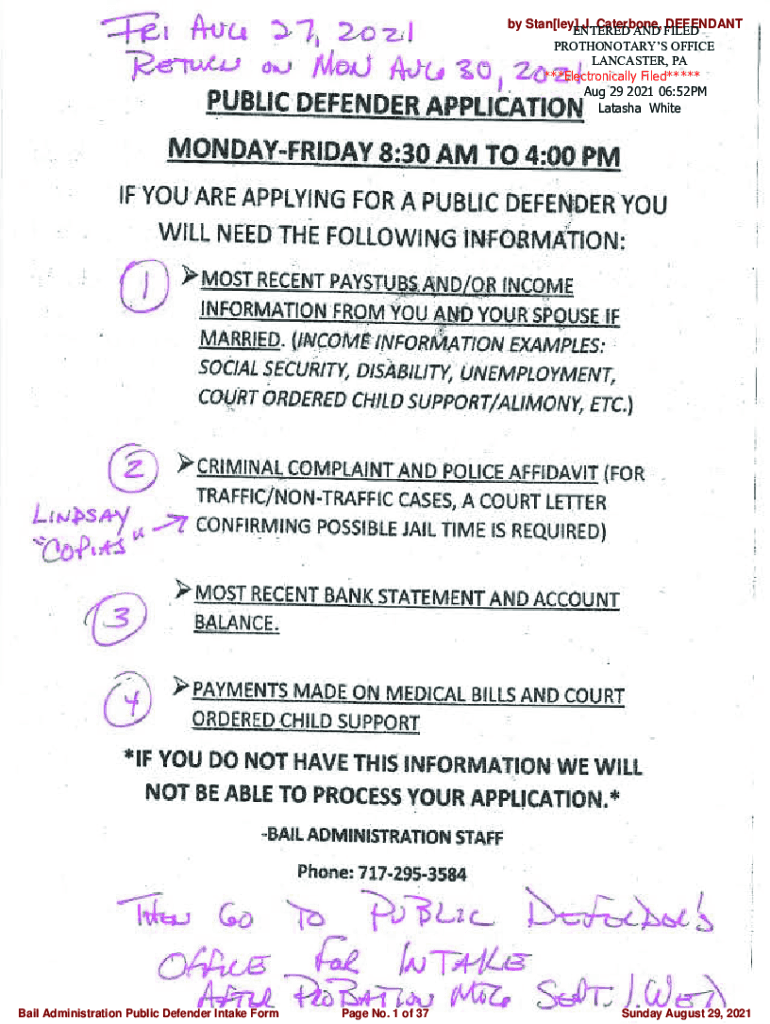 by Stan[ley] J. Caterbone, DEFENDANT
ENTERED AND FILED
PROTHONOTARY'S OFFICE
LANCASTER, PA
***Electronically Filed*****
Aug 29 2021 06:52PM
Latasha White
FRI AUG 27, 2021
RETURN ON MON AUG 30, 2021
PUBLIC DEFENDER APPLICATION
MONDAY-FRIDAY 8:30 AM TO 4:00 PM
IF YOU ARE APPLYING FOR A PUBLIC DEFENDER YOU
WILL NEED THE FOLLOWING INFORMATION:
1 ➢MOST RECENT PAYSTUBS AND/OR INCOME
INFORMATION FROM YOU AND YOUR SPOUSE IF
MARRIED. (INCOME INFORMATION EXAMPLES:
SOCIAL SECURITY, DISABILITY, UNEMPLOYMENT,
COURT ORDERED CHILD SUPPORT/ALIMONY, ETC.)
2 ➢CRIMINAL COMPLAINT AND POLICE AFFIDAVIT (FOR
TRAFFIC/NON-TRAFFIC CASES, A COURT LETTER
CONFIRMING POSSIBLE JAIL TIME IS REQUIRED)
LINDSAY
"COPIES"
3 ➢MOST RECENT BANK STATEMENT AND ACCOUNT
BALANCE.
4 ➢PAYMENTS MADE ON MEDICAL BILLS AND COURT
ORDERED CHILD SUPPORT
*IF YOU DO NOT HAVE THIS INFORMATION WE WILL
NOT BE ABLE TO PROCESS YOUR APPLICATION.*
-BAIL ADMINISTRATION STAFF
Phone: 717-295-3584
THEN GO TO PUBLIC DEFENDOR'S
OFFICE FOR INTAKE
AFTER PROBATION MTG SEPT. 1. WED
Bail Administration Public Defender Intake Form Page No. 1 of 37 Sunday August 29, 2021